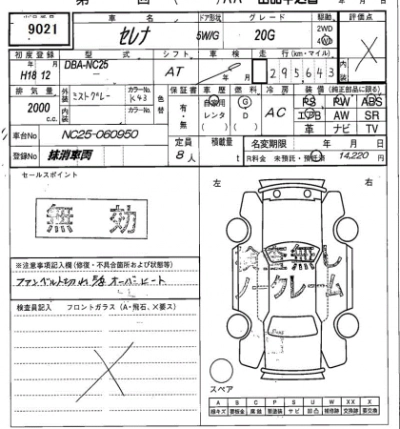 9021
車名 ドア形状 グレード 駆動 評価点
セレナ 5W/G 20G 2WD 4WD
初度登録 型式 シフト 車検 走行(km・マイル)
年 月 DBA-NC25 AT 年 月 295643
H18 12
排気量 外装 カラーNo. 色替 保証書 車歴 燃料 冷房 装備(純正部品に限る)
2000 c.c. ミストグレー K43 有・無 自家用 レンタ G D AC PS PW ABS
エアB AW SR
内装 カラーNo. 革 ナビ TV
車台No NC25-060950 定員 積載量 名変期限 年 月 日
登録No 抹消車両 8人 t R料金 未預託・預託済 14,220円
セールスポイント
無効
左 右
※注意事項記入欄(修復・不具合箇所および状態等)
ファンベルト切れ オーバーヒート
検査員記入 フロントガラス(A・飛石、×要ス)
検査無し
ノークレーム
スペア
A B C P S U W X XX